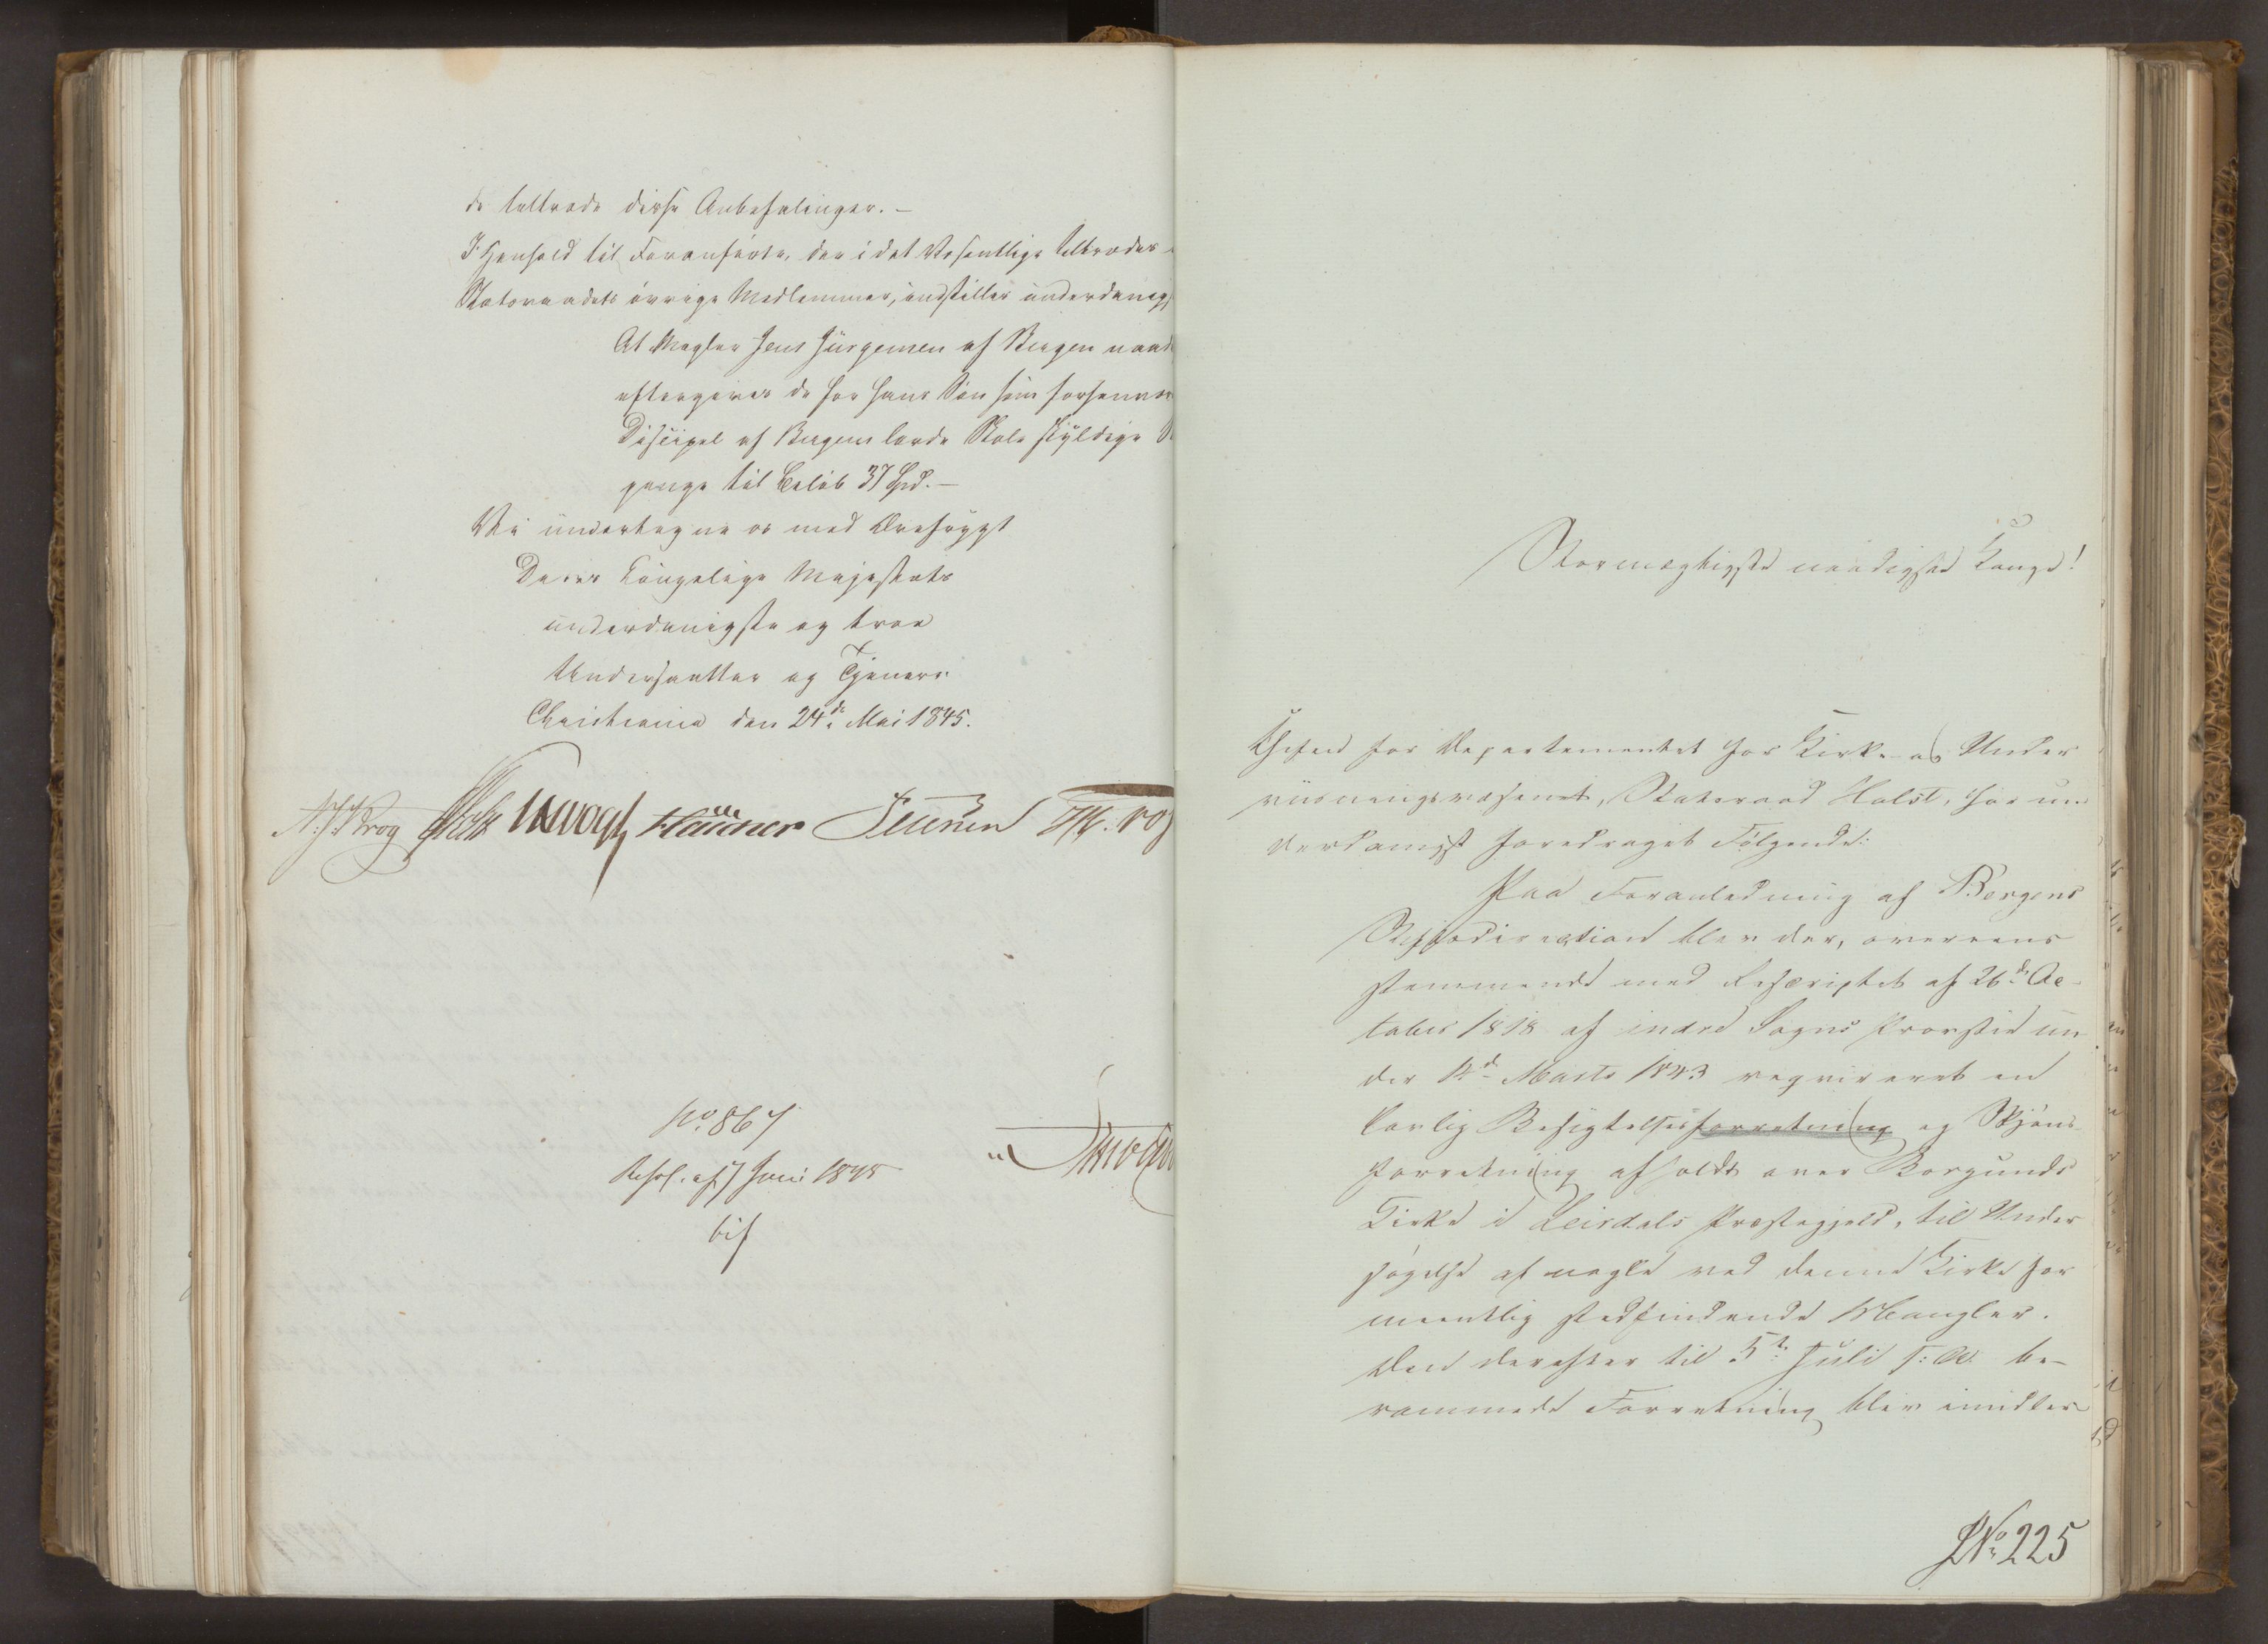 de tiltræde disse Anbefalinger. –
I Henhold til Foranførte, der i det Væsentlige tiltrædes
Statsraadets øvrige Medlemmer, indstilles underdanigst
At Mægler Jens Jürgensen af Bergen naad
eftergives de for hans Søn som forhenvær
Discipel af Bergens lærde Skole skyldige S
penge til Beløb 37 Spd. –
Vi undertegne os med Ærefrygt
Deres Kongelige Majestæts
underdanigste og troe
Undersaatter og Tjenere
Christiania den 24de Mai 1845.
N. J. Krog Holst JHVogt
No. 867
Resol. af 7 Juni 1845
bif
Stormægtigste naadigste Konge!
Chefen for Departementet for Kirke- og Under
viisningsvæsenet, Statsraad Holst, har un
derdanigst foredraget Følgende:
Paa Foranledning af Bergens
Stiftsdirection blev der, overeens
stemmende med Rescriptet af 26de Oc
tober 1818 af indre Sogns Provstie un
der 14de Marts 1843 reqvireret en
lovlig Besigtelsesforretning og Skjøns
forretning afholdt over Borgunds
Kirke i Leirdals Præstegjeld, til Under
søgelse af nogle ved denne Kirke for
meentlig stedfindende Mangler.
Den derefter til 5te Juli s: A. be-
rammede Forretning blev imidler
LNo. 225